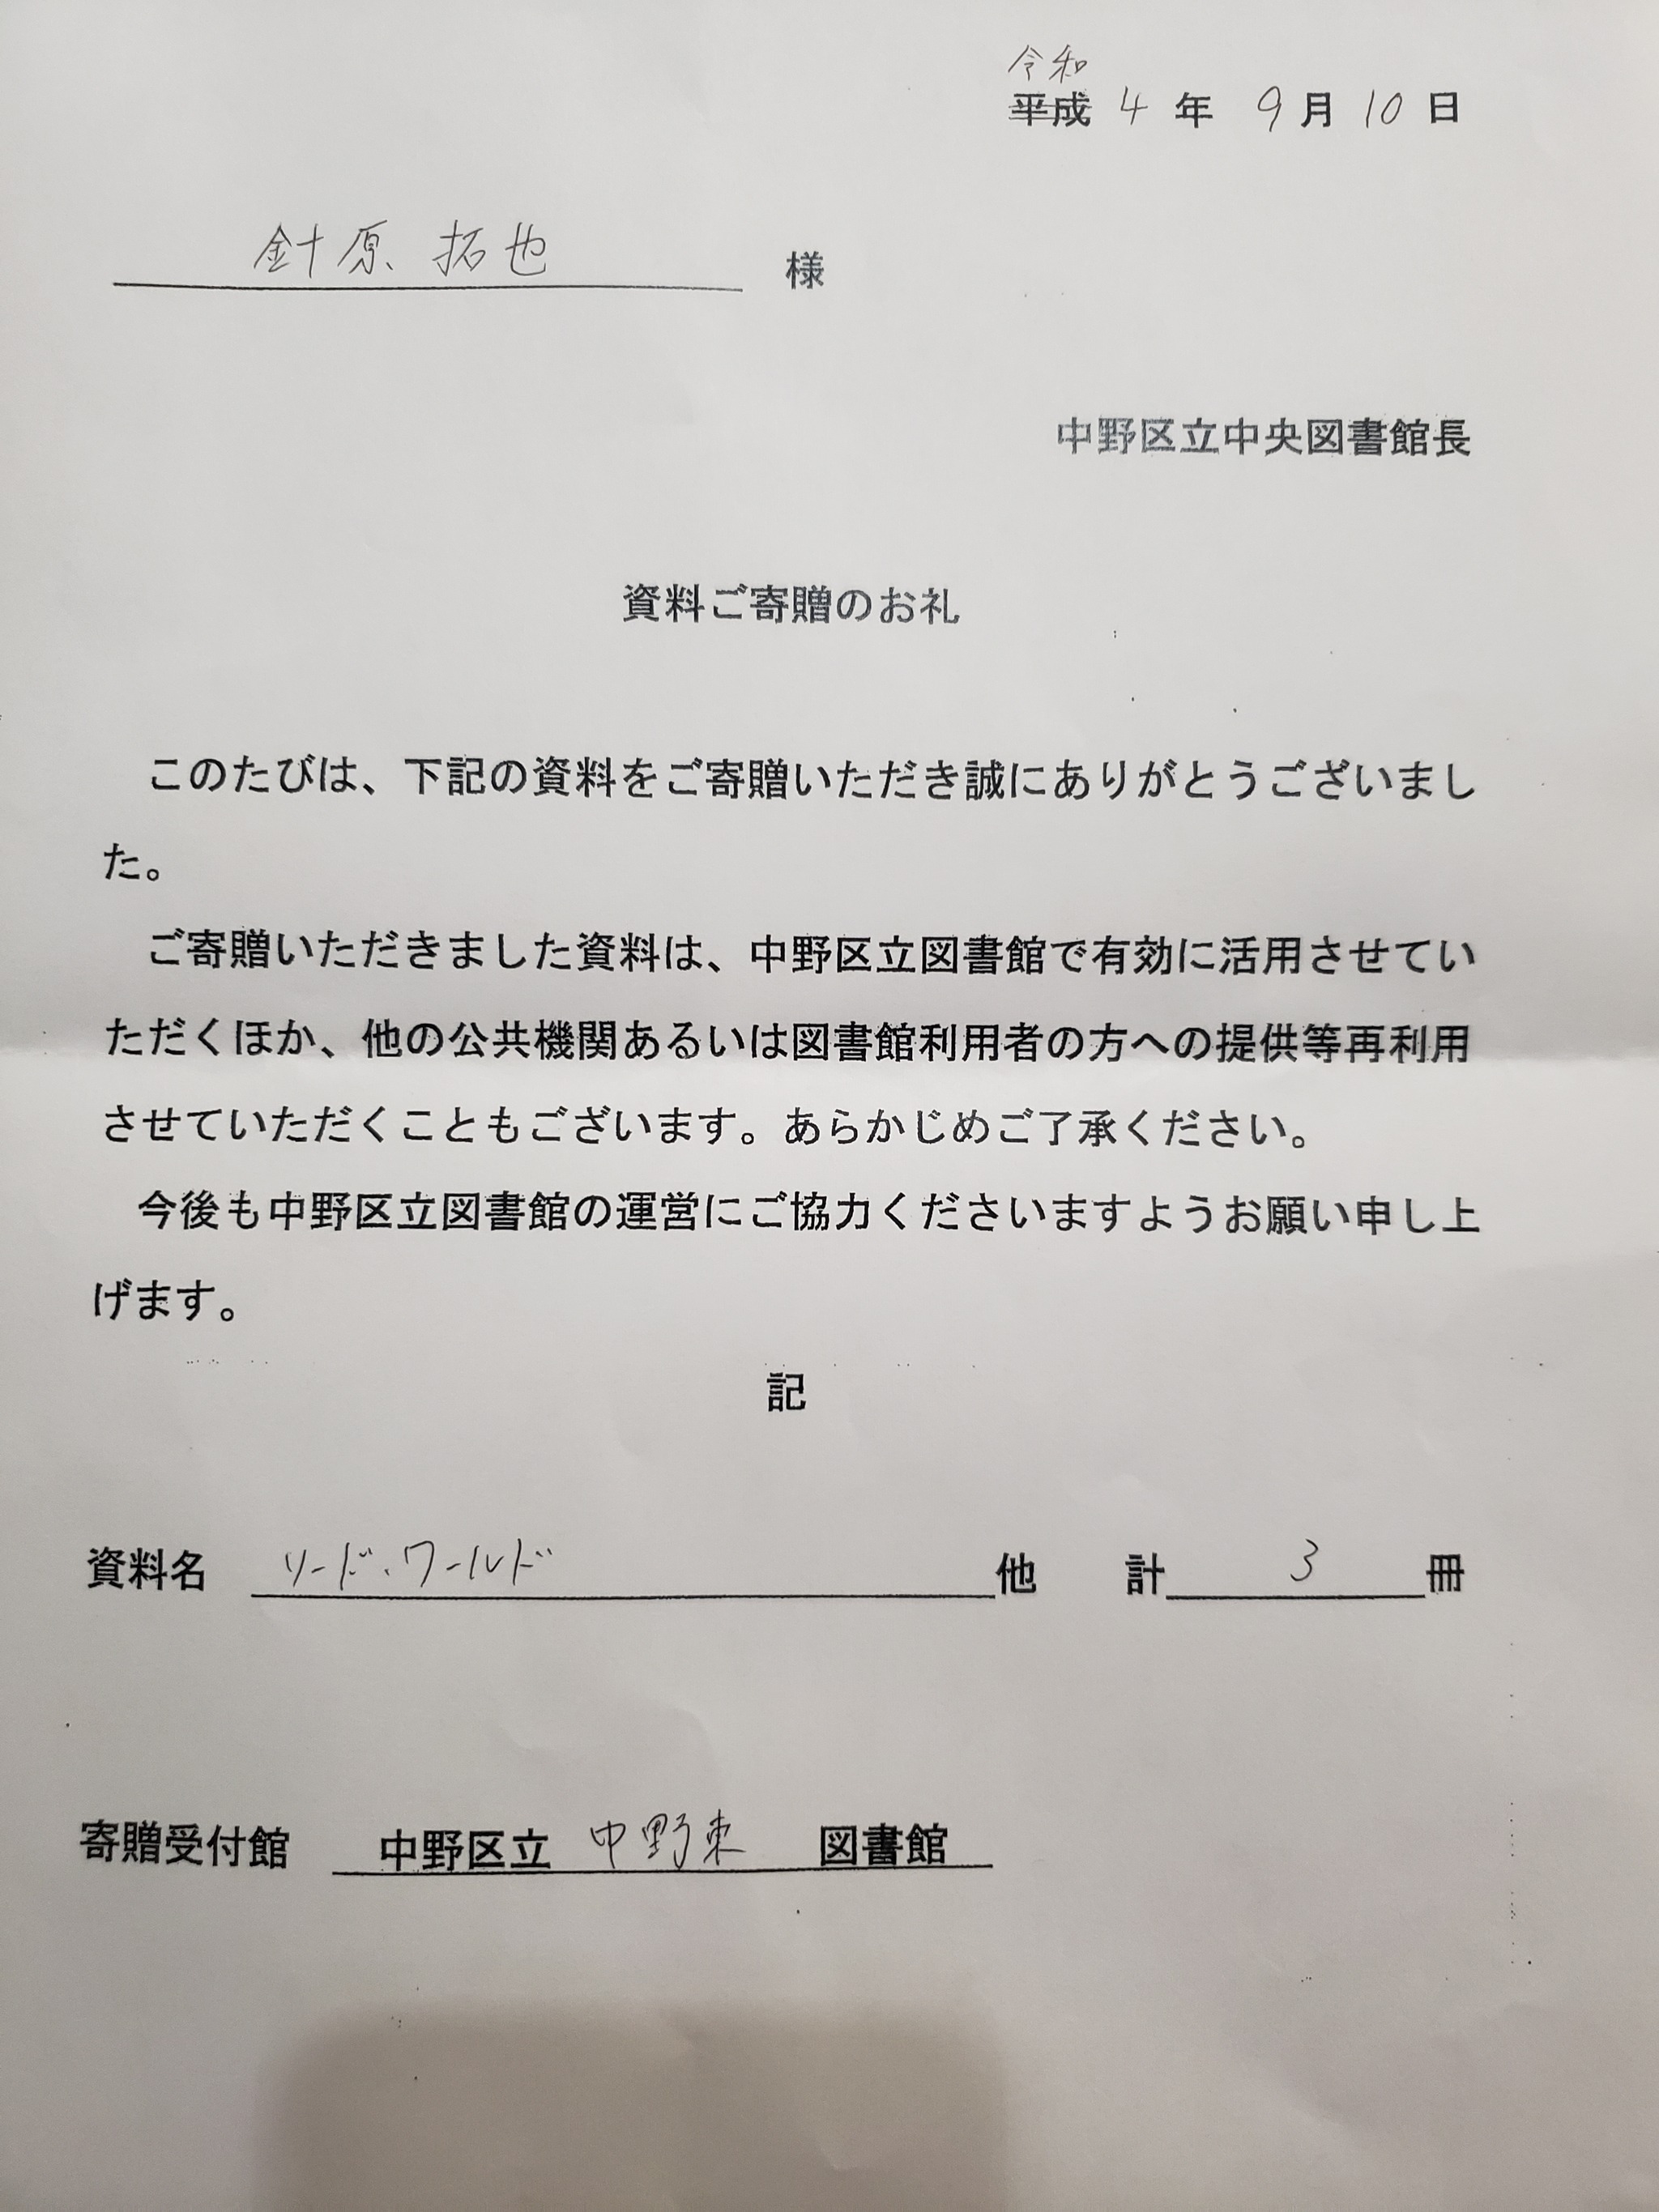 令和
平成 4 年 9 月 10 日
針原 拓也 様
中野区立中央図書館長
資料ご寄贈のお礼
このたびは、下記の資料をご寄贈いただき誠にありがとうございまし
た。
ご寄贈いただきました資料は、中野区立図書館で有効に活用させてい
ただくほか、他の公共機関あるいは図書館利用者の方への提供等再利用
させていただくこともございます。あらかじめご了承ください。
今後も中野区立図書館の運営にご協力くださいますようお願い申し上
げます。
記
資料名 リード・ワールド 他 計 3 冊
寄贈受付館 中野区立 中野東 図書館